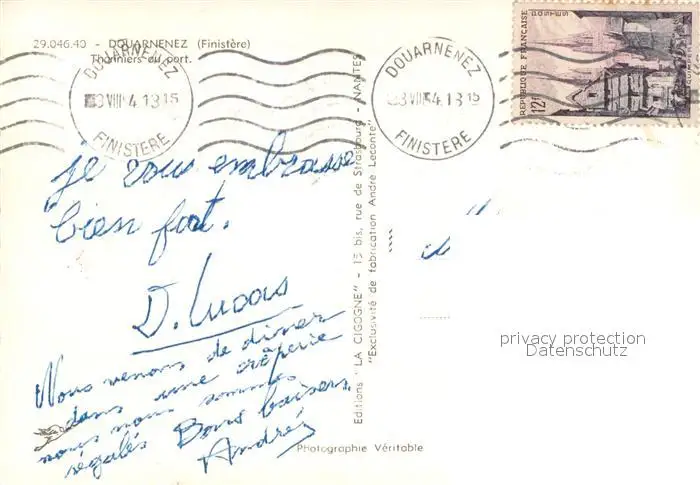 29.046.40 - DOUARNENEZ (Finistère)
Thonniers au port.
DOUARNENEZ
VIII 54.13 15
FINISTERE
DOUARNENEZ
3 VIII 54.13 15
FINISTERE
REPUBLIQUE FRANÇAISE
POSTES
12F
je vous embrasse
bien fort.
D. Lucas
Nous venons de diner
dans une crêperie
nous nous sommes
régalés Bons baisers
Andrée
Editions "LA CIGOGNE" - 15 bis, rue de Strasbourg - NANTES
"Exclusivité de fabrication André Leconte"
Photographie Véritable
privacy protection
Datenschutz